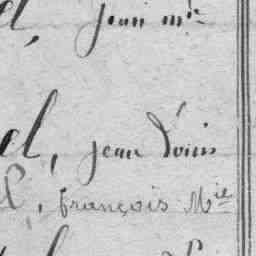 el, jean m.ie
el, jean Louis
l, françois Mie